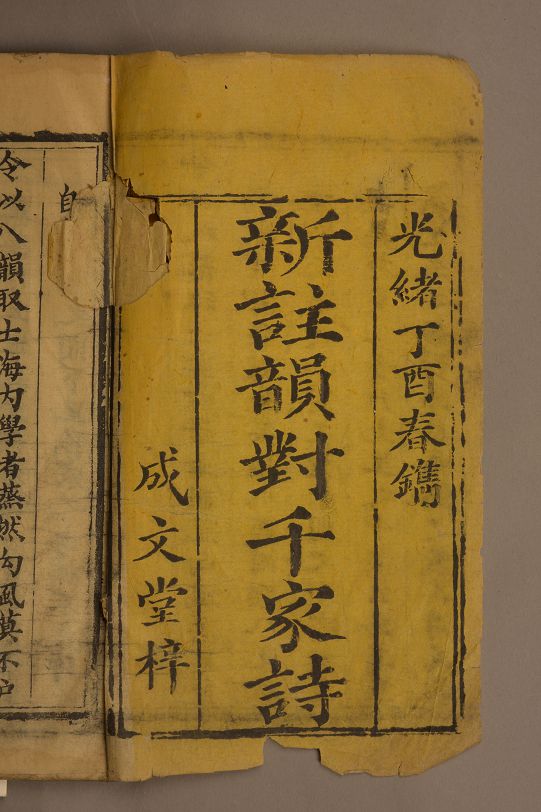 光緒丁酉春鐫
新註韻對千家詩
成文堂梓
自
令以八韻取士海内學者蒸然勾風莫不户